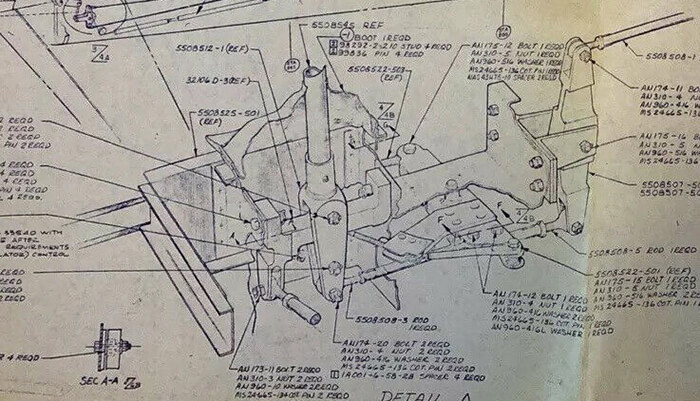 3/4A
5508545 REF
(-1) BOOT 1 REQD
98292-2-210 STUD 4 REQD
99836 PIN 4 REQD
5508512-1 (REF)
32106 D-3 (REF)
5508525-501
(REF)
5508522-503
(REF)
4/4B
AN175-12 BOLT 1 REQD
AN310-5 NUT 1 REQD
AN960-516 WASHER 2 REQD
MS24665-136 COT. PIN 1 REQD
SPACER 2 REQD
5508508-1
AN174-11 BOLT
AN310-4 NUT
AN960-416
MS24665-136
AN175-16 BOLT
AN310-5 NUT
AN960-516 WASHER
MS24665-136
5508507-
5508507-50
5508508-5 ROD 1 REQD
5508522-501 (REF)
AN175-15 BOLT 1 REQD
AN310-5 NUT 1 REQD
AN960-516 WASHER 2 REQD
MS24665-136 COT. PIN 1
AN174-12 BOLT 1 REQD
AN310-4 NUT 1 REQD
AN960-416 WASHER 2 REQD
MS24665-136 COT. PIN 1 REQD
AN960-416L WASHER 2 REQD
4/4B
F
F
5508508-3 ROD
1 REQD
AN174-20 BOLT 2 REQD
AN310-4 NUT 2 REQD
AN960-416 WASHER 2 REQD
MS24665-136 COT. PIN 2 REQD
1A001-6-58-28 SPACER 4 REQD
AN173-11 BOLT 2 REQD
AN310-3 NUT 2 REQD
AN960-10 WASHER 2 REQD
MS24665-136 COT PIN 2 REQD
2 REQD
REQD
2 REQD
PIN 2 REQD
4 REQD
REQD
4 REQD
PIN 4 REQD
4 REQD
35240 WITH
AFTER
REQUIREMENTS
CONTROL
REQD
REQD
4 REQD
A
A
SEC A-A
DETAIL A